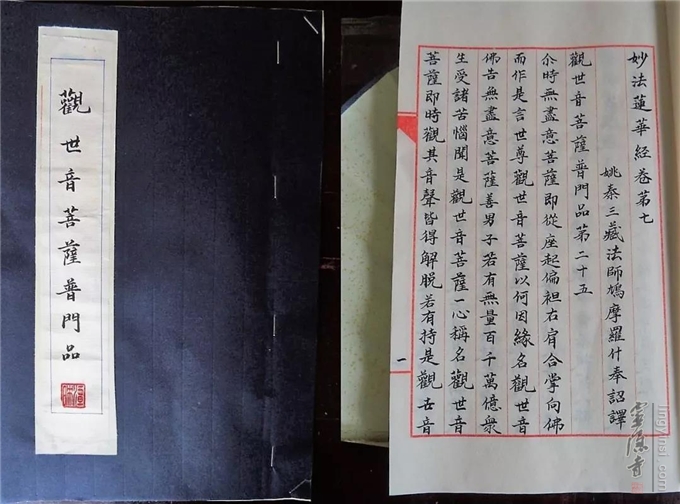 觀世音菩薩普門品
妙法蓮華經卷第七
姚秦三藏法師鳩摩羅什奉詔譯
觀世音菩薩普門品第二十五
尒時無盡意菩薩即從座起偏袒右肩合掌向佛
而作是言世尊觀世音菩薩以何因緣名觀世音
佛告無盡意菩薩善男子若有無量百千萬億衆
生受諸苦惱聞是觀世音菩薩一心稱名觀世音
菩薩即時觀其音聲皆得解脫若有持是觀世音
一
靈隱寺
lingyinsi.com